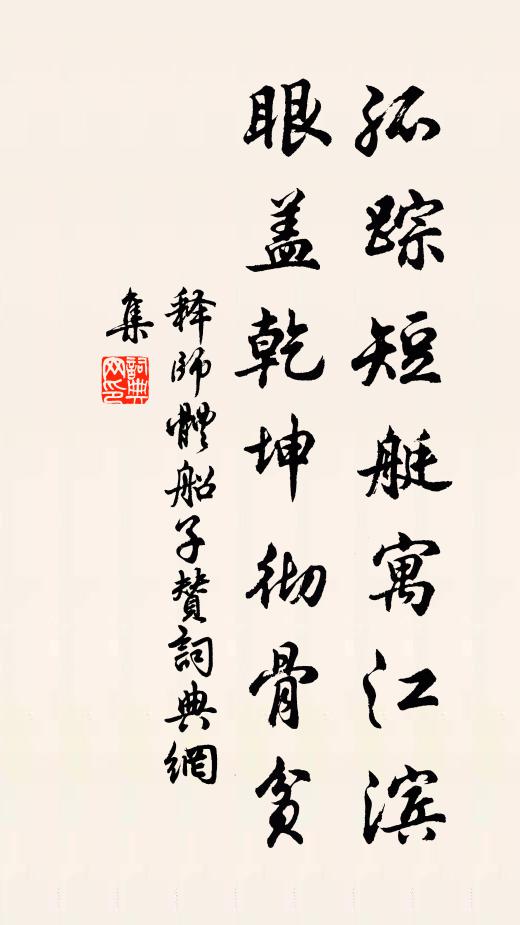 孤踪短艇寓江滨
眼盖乾坤彻骨贫
释师體船子赞詞典網
集
詞典网印